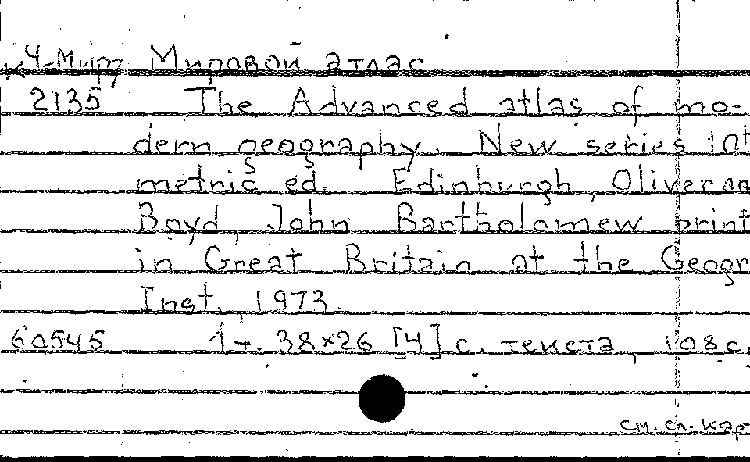 к4-Мир Мировой атлас
2135 The Advanced atlas of mo-
dern geography. New series 10t
metric ed. Edinburgh, Oliver an
Boyd, John Bartholomew print
in Great Britain at the Geogr
Inst., 1973.
60545 1 т. 38×26 [4] с. текста, 108 с.
см. сл. кар